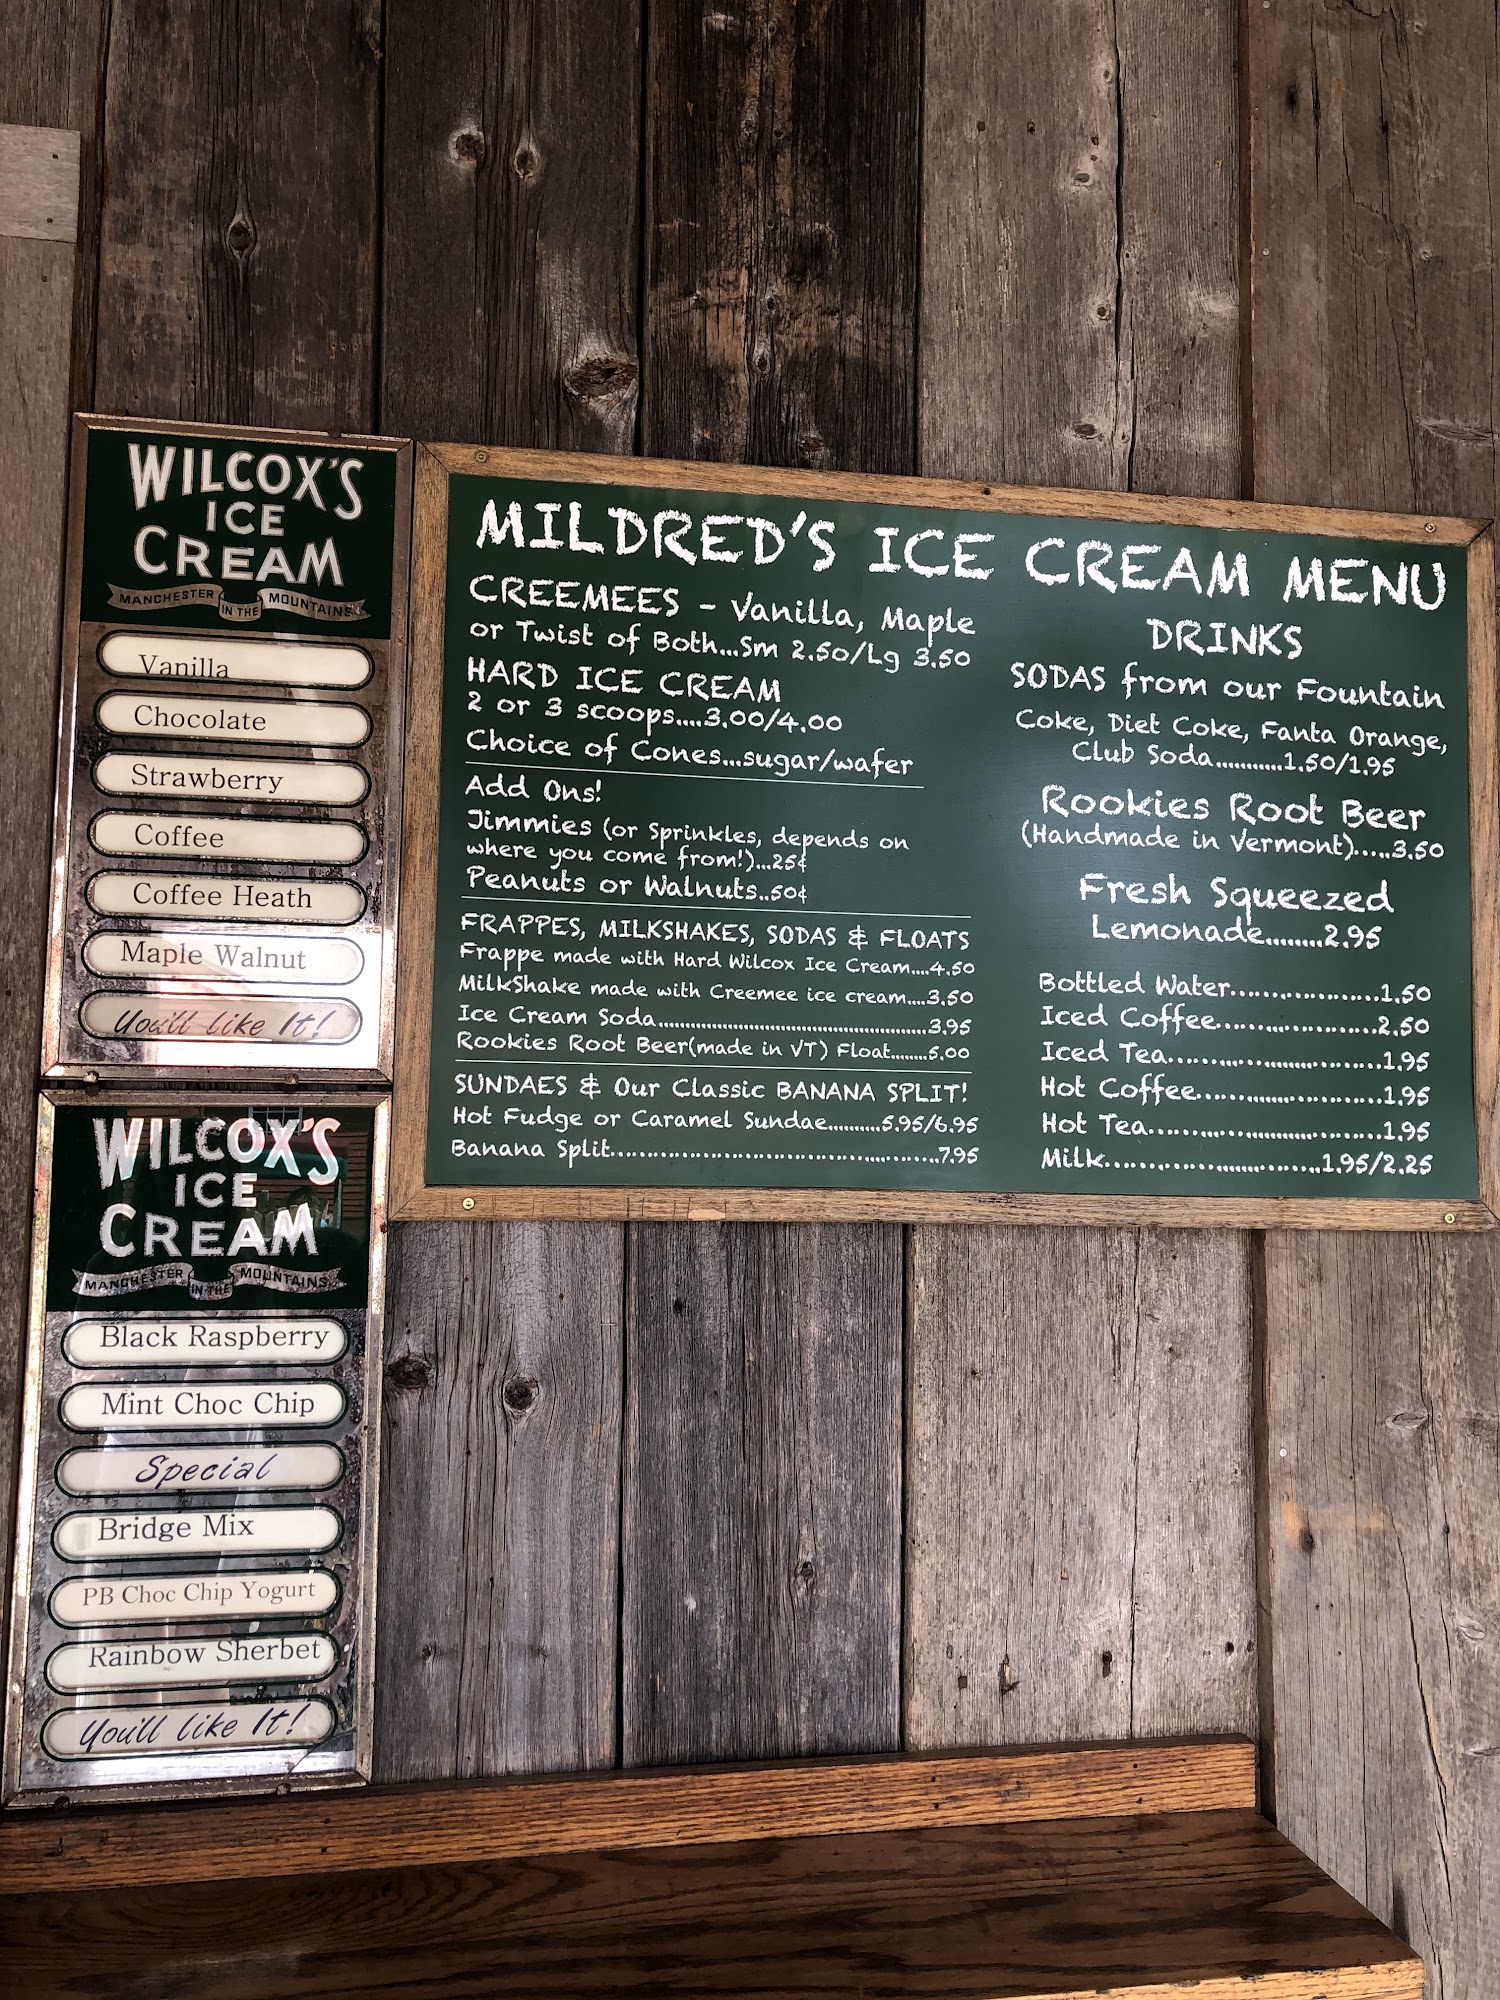 WILCOX'S
ICE
CREAM
MANCHESTER IN THE MOUNTAINS
Vanilla
Chocolate
Strawberry
Coffee
Coffee Heath
Maple Walnut
You'll like It!
WILCOX'S
ICE
CREAM
MANCHESTER IN THE MOUNTAINS
Black Raspberry
Mint Choc Chip
Special
Bridge Mix
PB Choc Chip Yogurt
Rainbow Sherbet
You'll like It!
MILDRED'S ICE CREAM MENU
CREEMEES - Vanilla, Maple
or Twist of Both...Sm 2.50/Lg 3.50
HARD ICE CREAM
2 or 3 scoops....3.00/4.00
Choice of Cones...sugar/wafer
Add Ons!
Jimmies (or Sprinkles, depends on
where you come from!)...25¢
Peanuts or Walnuts..50¢
FRAPPES, MILKSHAKES, SODAS & FLOATS
Frappe made with Hard Wilcox Ice Cream....4.50
MilkShake made with Creemee ice cream....3.50
Ice Cream Soda..................................................3.95
Rookies Root Beer(made in VT) Float........5.00
SUNDAES & Our Classic BANANA SPLIT!
Hot Fudge or Caramel Sundae..........5.95/6.95
Banana Split..........................................7.95
DRINKS
SODAS from our Fountain
Coke, Diet Coke, Fanta Orange,
Club Soda............1.50/1.95
Rookies Root Beer
(Handmade in Vermont).....3.50
Fresh Squeezed
Lemonade.........2.95
Bottled Water......................1.50
Iced Coffee.......................2.50
Iced Tea..............................1.95
Hot Coffee..........................1.95
Hot Tea................................1.95
Milk..............................1.95/2.25